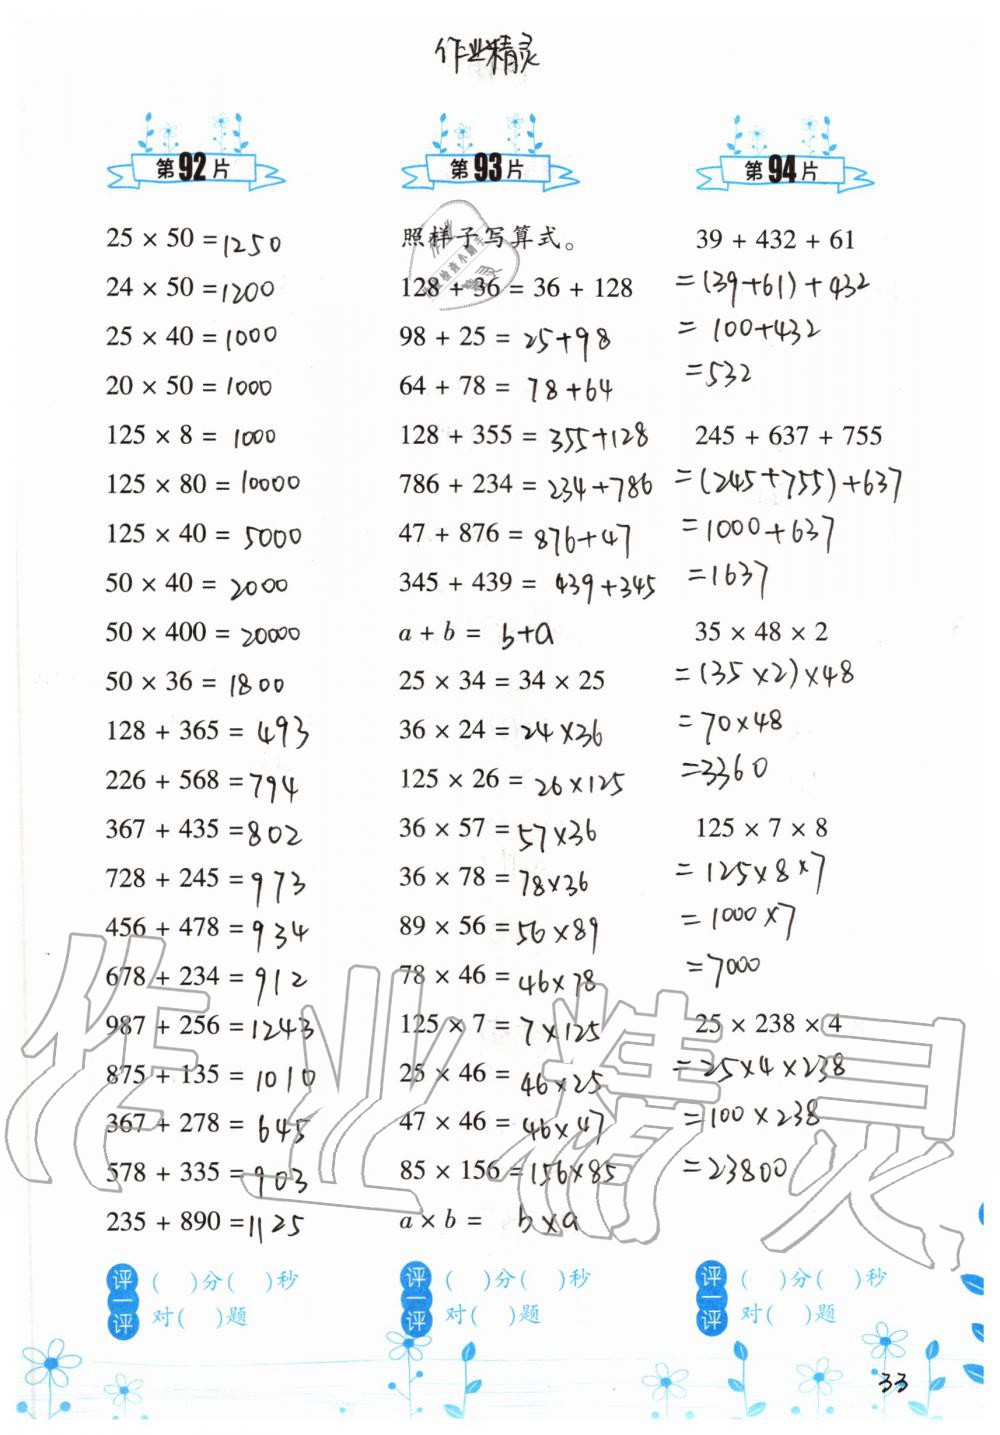 作业精灵
第92片
25 × 50 = 1250
24 × 50 = 1200
25 × 40 = 1000
20 × 50 = 1000
125 × 8 = 1000
125 × 80 = 10000
125 × 40 = 5000
50 × 40 = 2000
50 × 400 = 20000
50 × 36 = 1800
128 + 365 = 493
226 + 568 = 794
367 + 435 = 802
728 + 245 = 973
456 + 478 = 934
678 + 234 = 912
987 + 256 = 1243
875 + 135 = 1010
367 + 278 = 645
578 + 335 = 903
235 + 890 = 1125
评一评
( )分( )秒
对( )题
第93片
照样子写算式。
128 + 36 = 36 + 128
98 + 25 = 25+98
64 + 78 = 78+64
128 + 355 = 355+128
786 + 234 = 234+786
47 + 876 = 876+47
345 + 439 = 439+345
a + b = b+a
25 × 34 = 34 × 25
36 × 24 = 24×36
125 × 26 = 26×125
36 × 57 = 57×36
36 × 78 = 78×36
89 × 56 = 56×89
78 × 46 = 46×78
125 × 7 = 7×125
25 × 46 = 46×25
47 × 46 = 46×47
85 × 156 = 156×85
a × b = b×a
评一评
( )分( )秒
对( )题
第94片
39 + 432 + 61
= (39+61)+432
= 100+432
= 532
245 + 637 + 755
= (245+755)+637
= 1000+637
= 1637
35 × 48 × 2
= (35×2)×48
= 70×48
= 3360
125 × 7 × 8
= 125×8×7
= 1000×7
= 7000
25 × 238 × 4
= 25×4×238
= 100×238
= 23800
评一评
( )分( )秒
对( )题
33
作业精灵